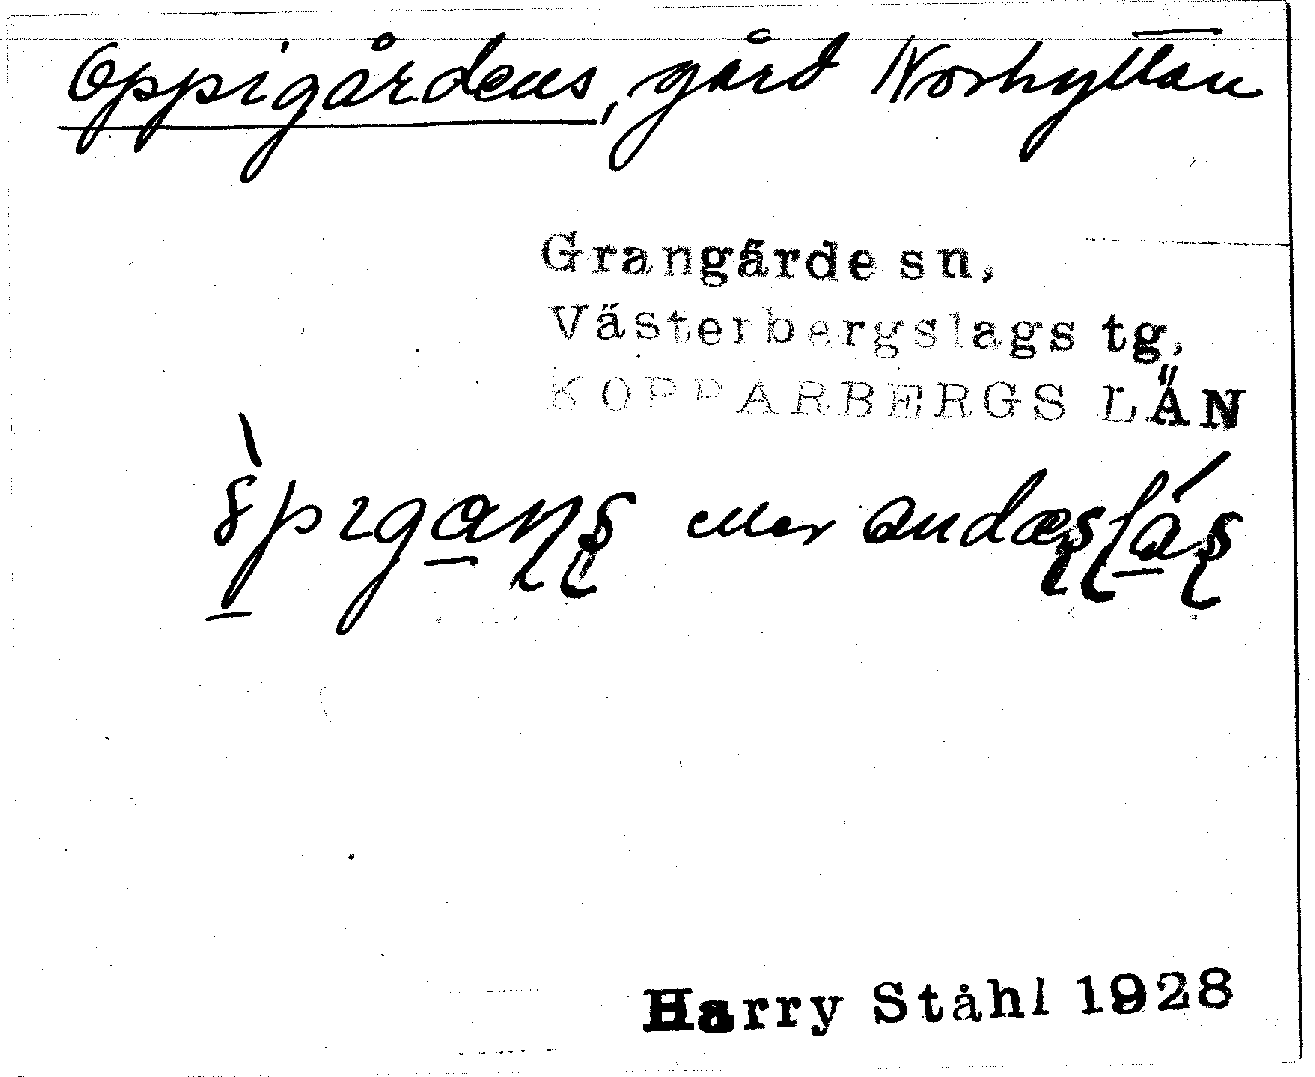 Oppigårdens, gård Norhyttan
Grangärde sn,
Västerbergslags tg,
KOPPARBERGS LÄN
eller
Harry Ståhl 1928